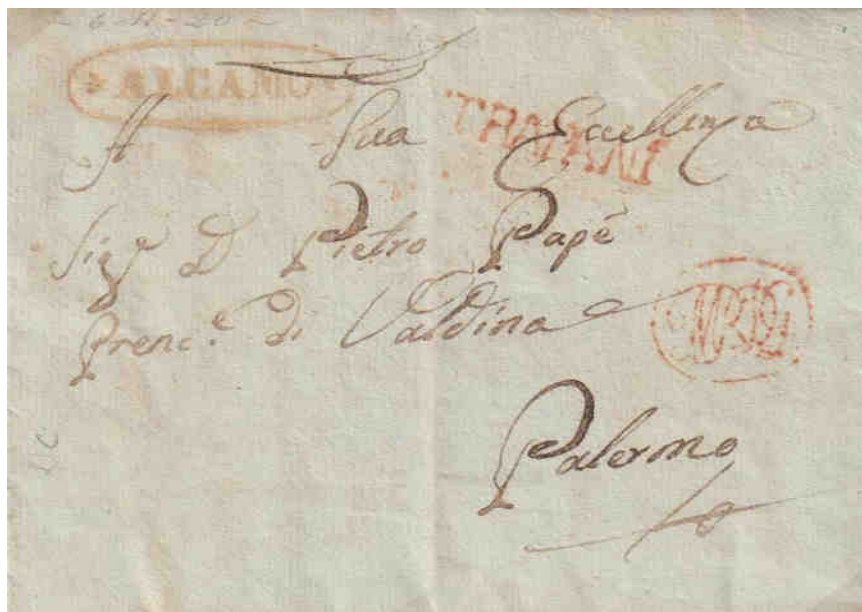 6-11-20
ALCAMO
TRAPANI
A Sua Eccellenza
Sigr D Pietro Papè
Prenc.e di Valdina
Palermo